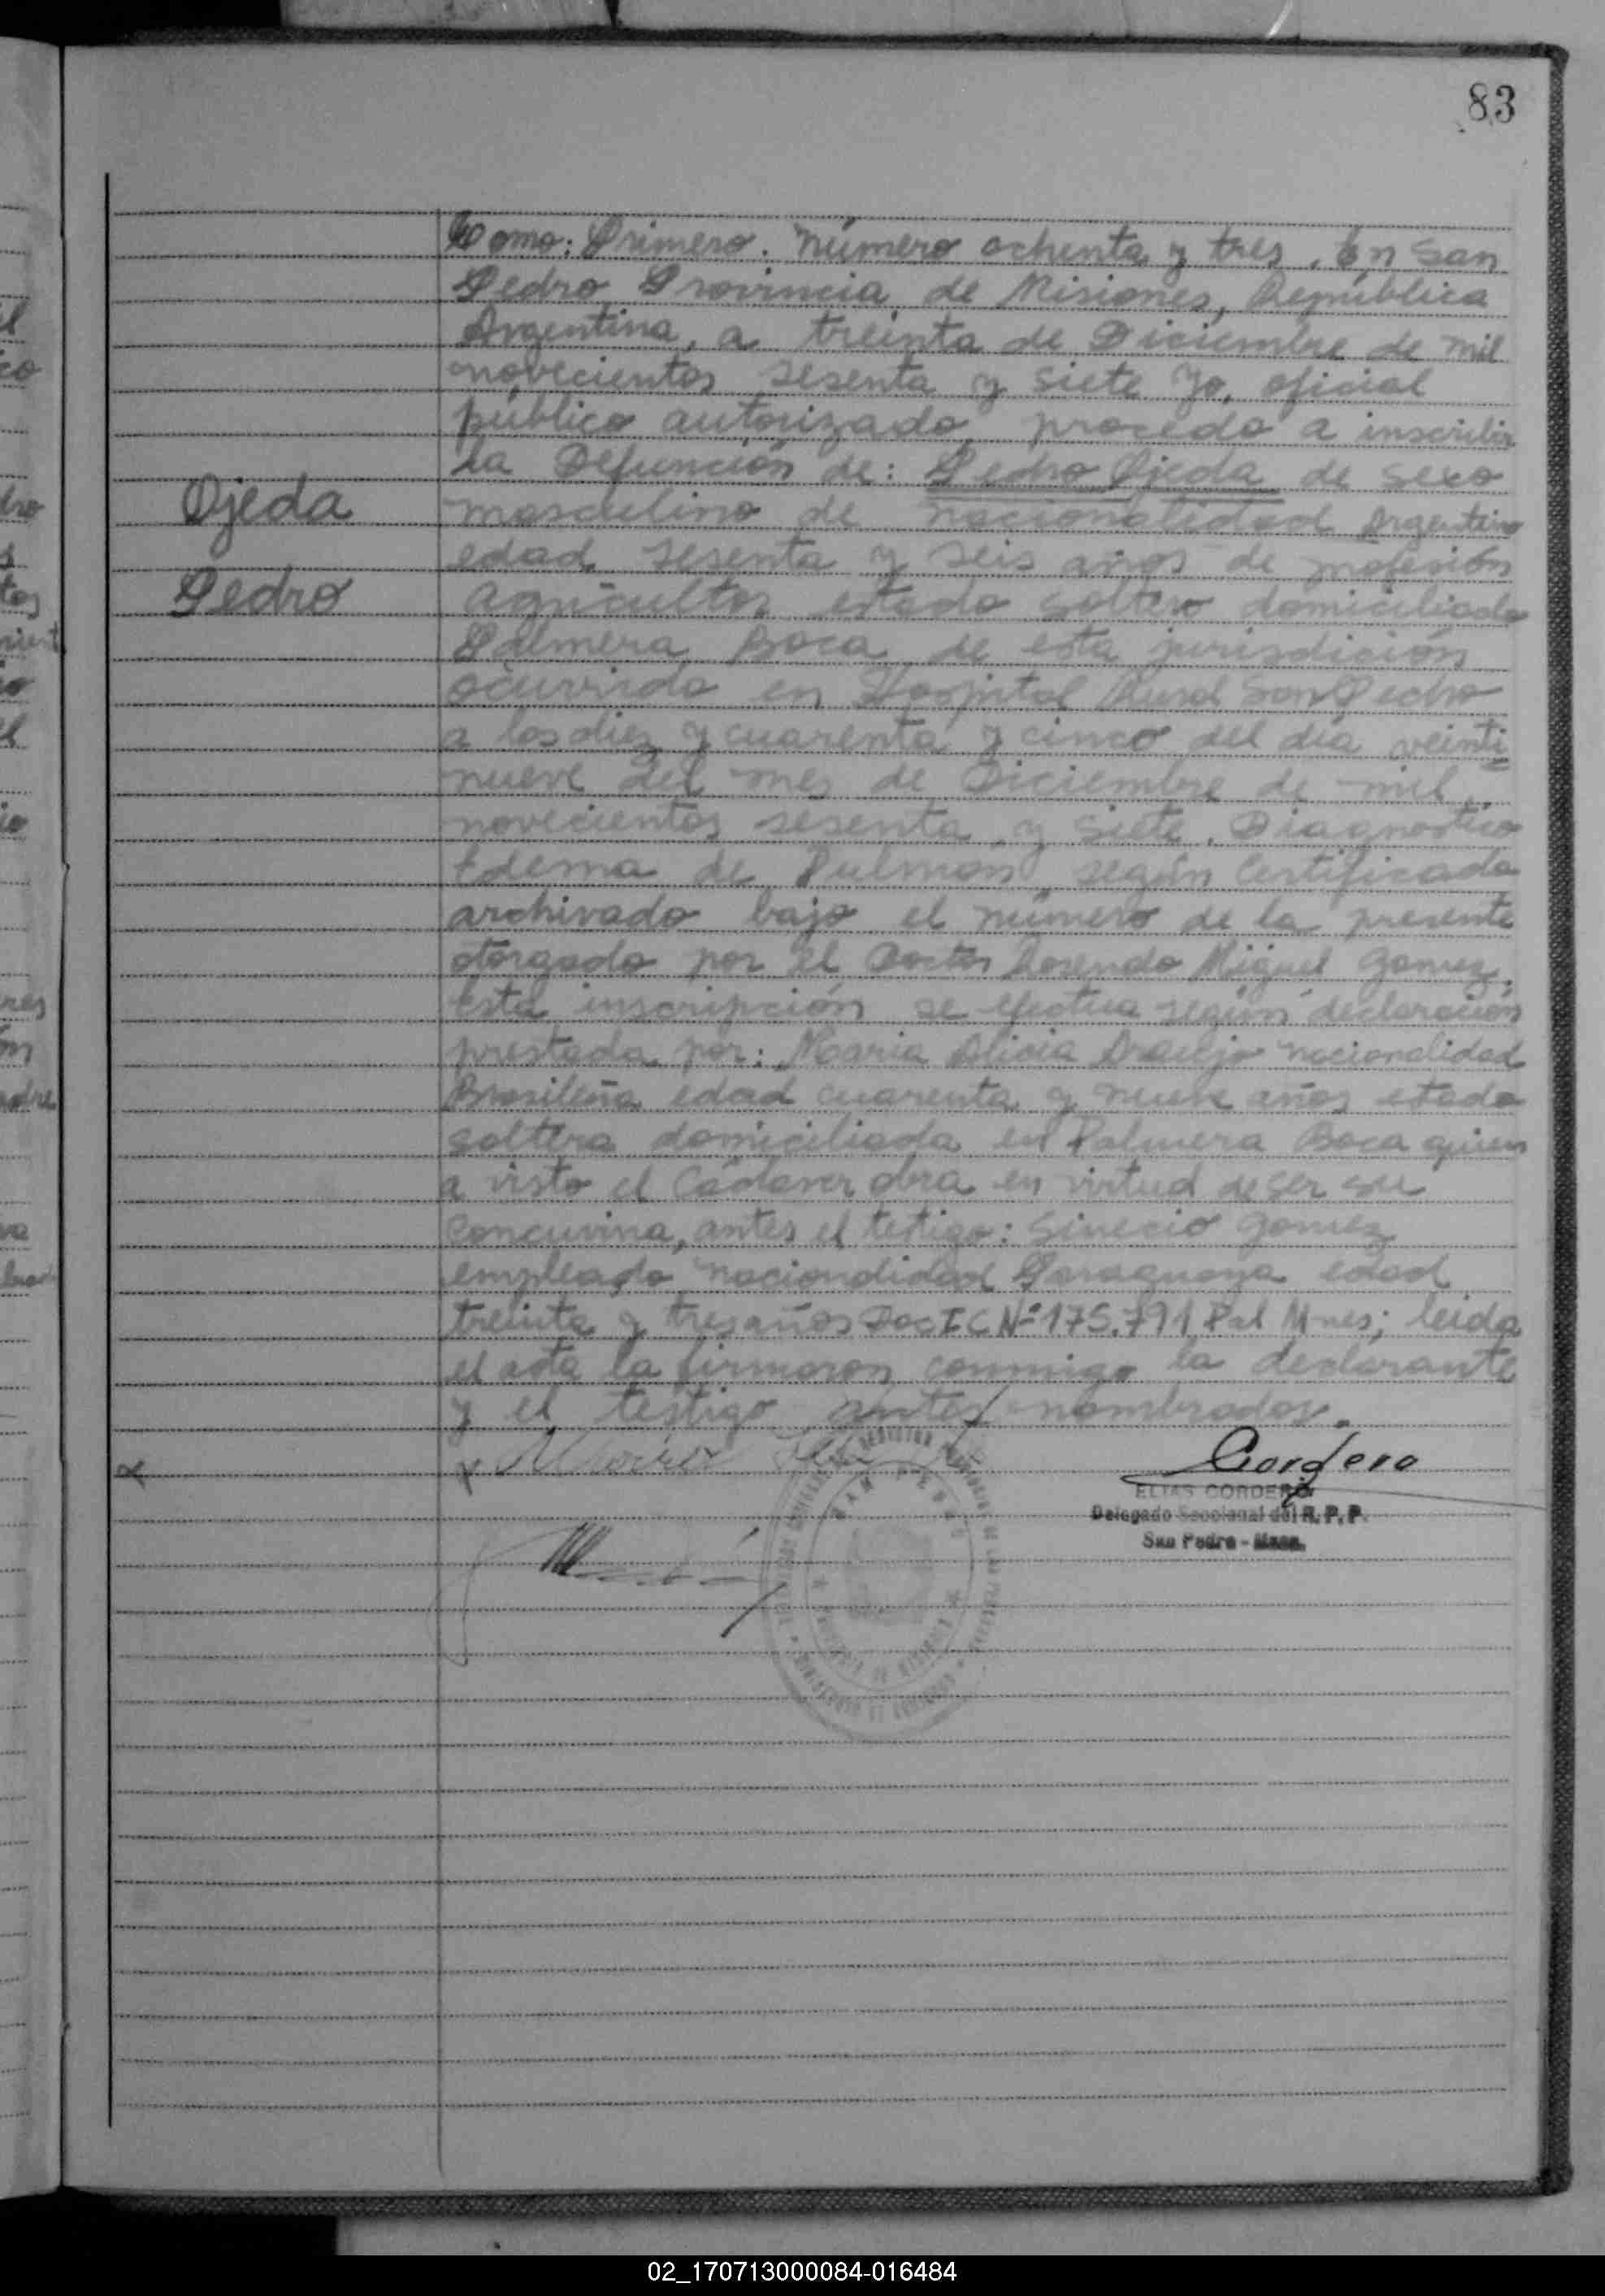 83
Tomo: Primero. Número ochenta y tres. En San
Pedro, Provincia de Misiones, República
Argentina, a treinta de Diciembre de mil
novecientos sesenta y siete Yo, oficial
público autorizado, procedo a inscribir
la Defunción de: Pedro Ojeda de sexo
Ojeda
masculino de nacionalidad Argentino
edad sesenta y seis años de profesión
Pedro
agricultor estado soltero domiciliado
Palmera Boca de esta jurisdición
ocurrida en Hospital Rural San Pedro
a las diez y cuarenta y cinco del día veinti
nueve del mes de Diciembre de mil
novecientos sesenta y siete. Diagnostico
Edema de Pulmón, según Certificado
archivado bajo el número de la presente
otorgado por el Doctor Rosendo Miguel Gomez.
Esta inscripción se efectua según declaración
prestada por: Maria Alicia Araujo nacionalidad
Brasileña edad cuarenta y nueve años estado
soltera domiciliada en Palmera Boca quien
a visto el Cádaver obra en virtud de ser su
concuvina, antes el testigo: Sinecio Gomez
empleado nacionalidad Paraguaya edad
treinta y tres años Doc I C Nº 175.791 Pol Mnes; leida
el acta la firmaron conmigo la declarante
y el testigo antes nombrados.
x Maria
Cordero
ELIAS CORDERO
Delegado Seccional del R. P. P.
San Pedro - Mnes.
02_170713000084-016484